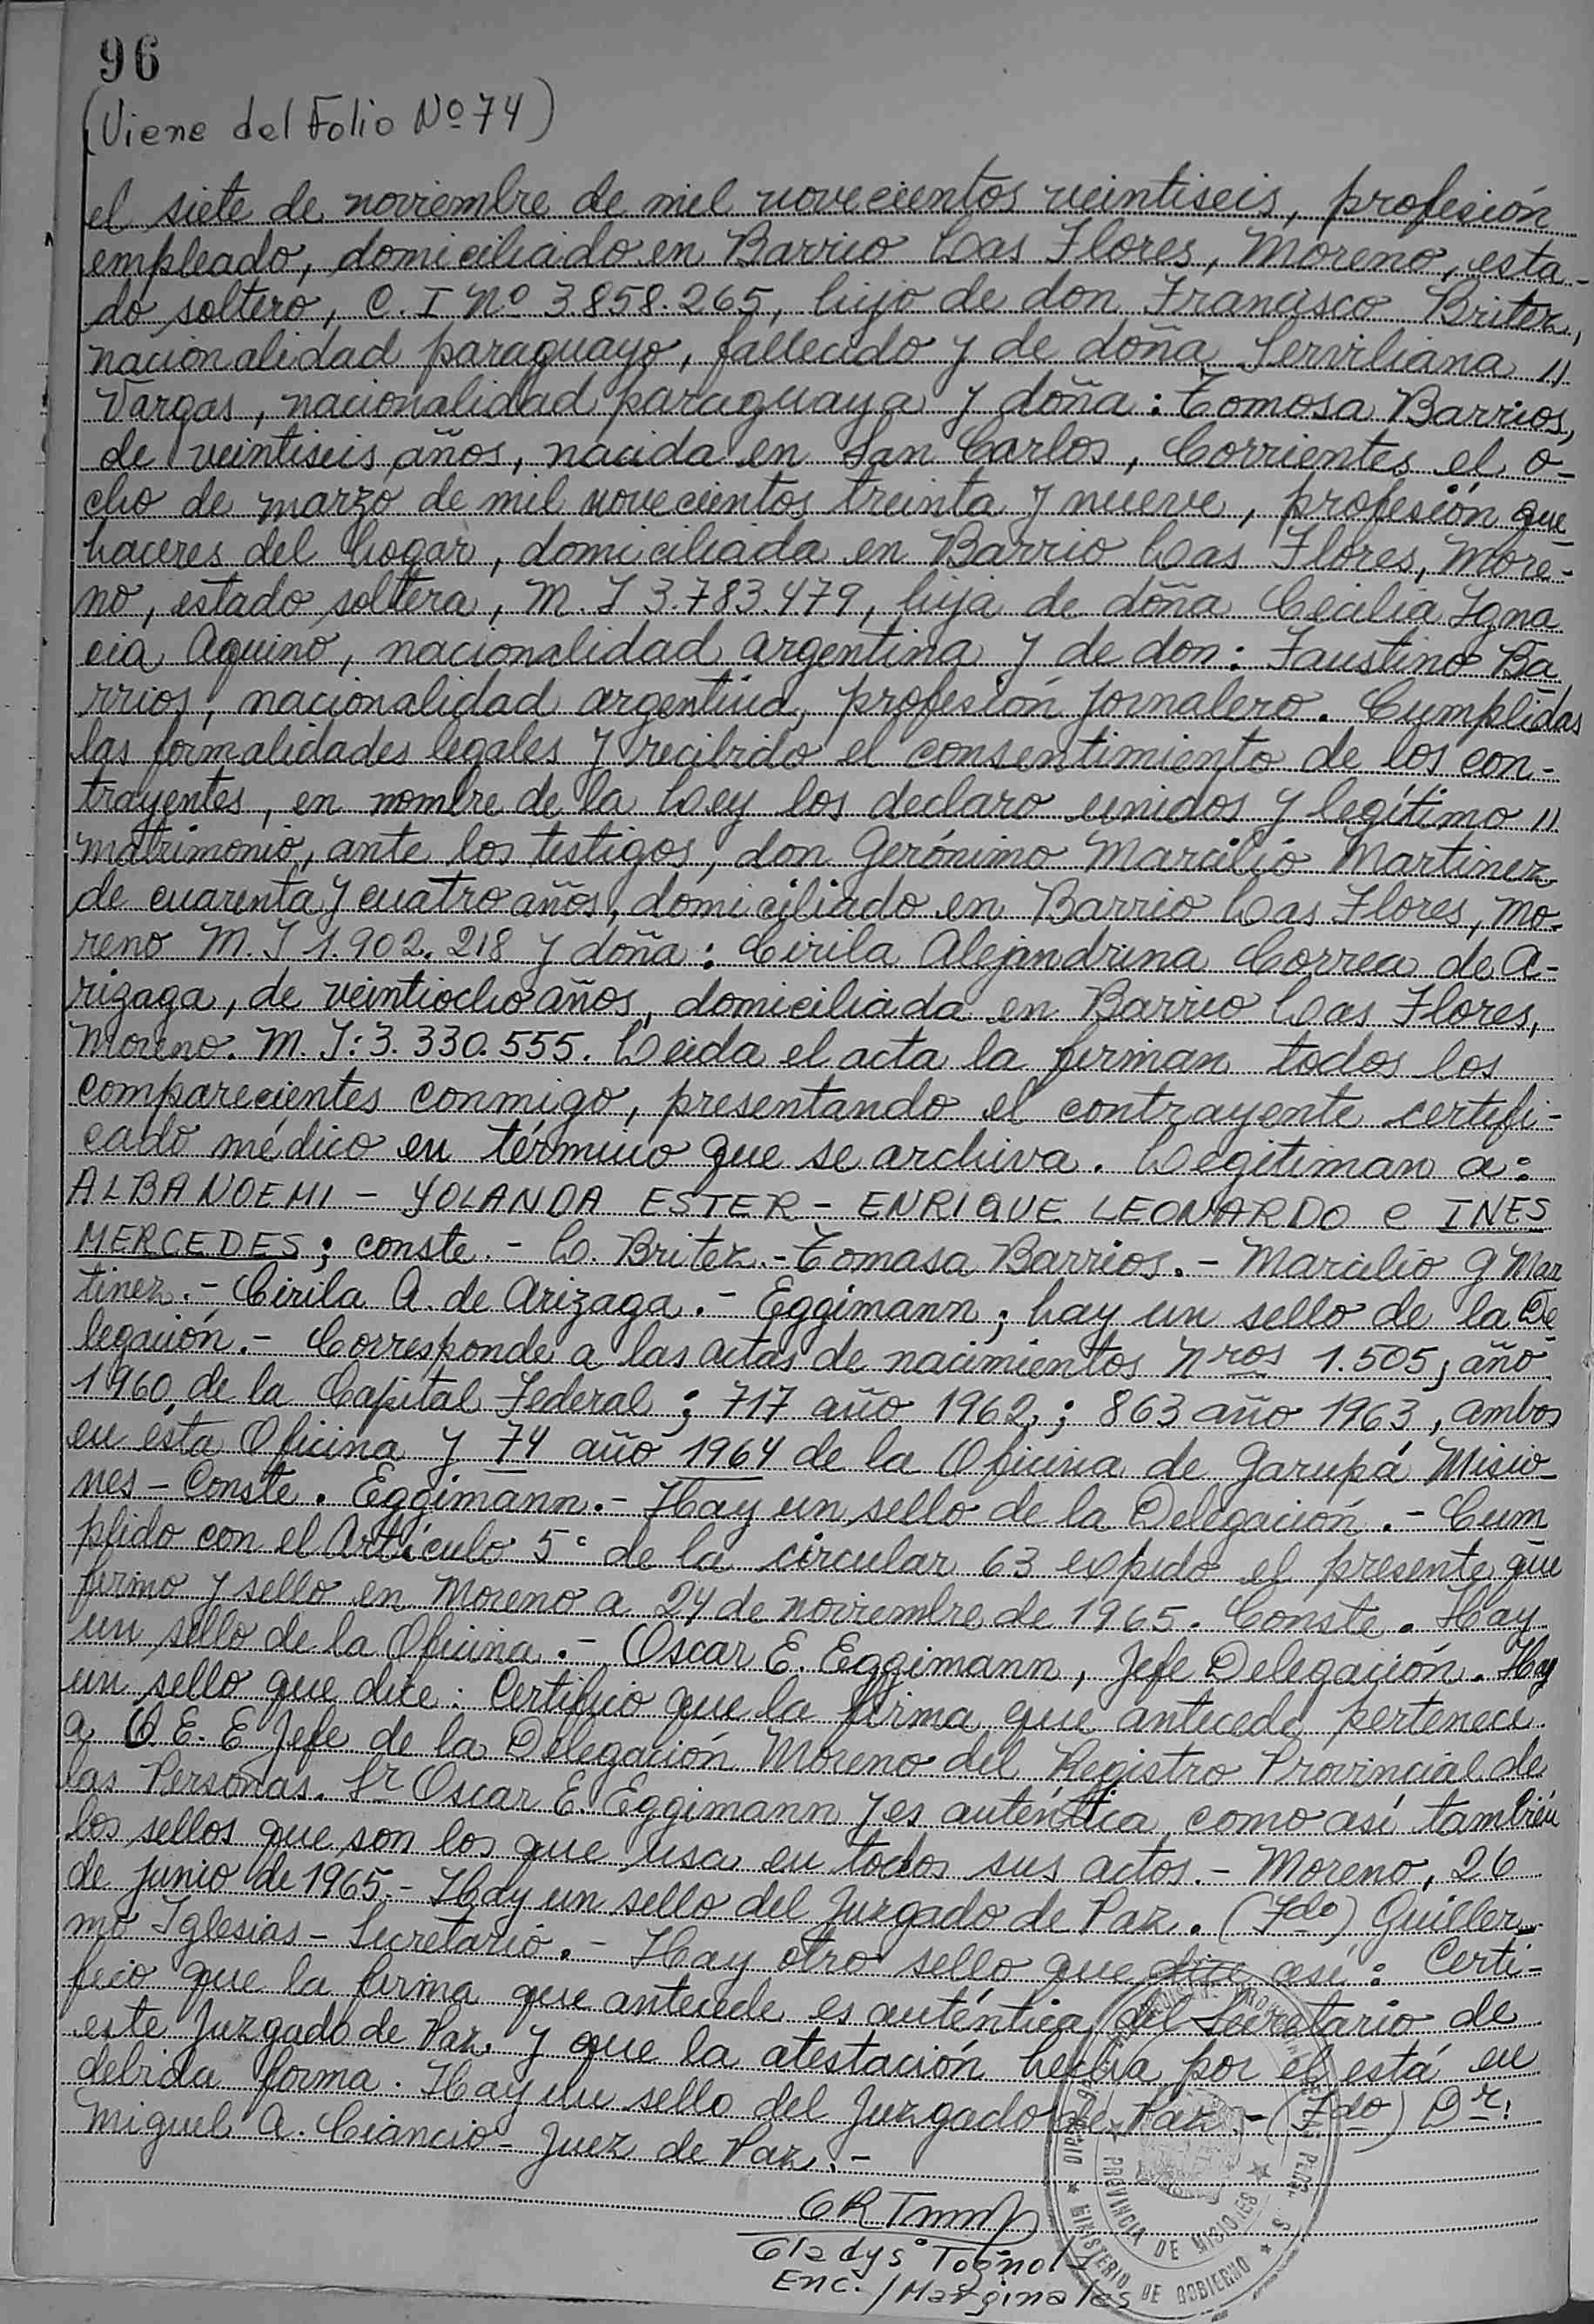 96
(Viene del Folio Nº 74)
el siete de noviembre de mil novecientos veintiseis, profesión
empleado, domiciliado en Barrio Las Flores, Moreno, esta-
do soltero, C. I Nº 3.858.265, hijo de don Francisco Britez,
nacionalidad paraguayo, fallecido y de doña Serviliana "
Vargas, nacionalidad paraguaya y doña: Tomosa Barrios,
de veintiseis años, nacida en San Carlos, Corrientes el o-
cho de marzo de mil novecientos treinta y nueve, profesión que
haceres del hogar, domiciliada en Barrio Las Flores, More-
no, estado soltera, M. I 3.783.479, hija de doña Cecilia Igna
cia Aquino, nacionalidad argentina y de don: Faustino Ba
rrios, nacionalidad argentina, profesión jornalero. Cumplidas
las formalidades legales y recibido el consentimiento de los con-
trayentes, en nombre de la Ley los declaro unidos y legítimo "
matrimonio, ante los testigos, don Gerónimo Marcilio Martinez
de cuarenta y cuatro años, domiciliado en Barrio Las Flores, Mo-
reno M. I 1.902.218 y doña: Cirila Alejandrina Correa de A-
rizaga, de veintiocho años, domiciliada en Barrio Las Flores,
Moreno. M. I: 3.330.555. Leida el acta la firman todos los
comparecientes conmigo, presentando el contrayente certifi-
cado médico en término que se archiva. Legitiman a:
ALBA NOEMI - YOLANDA ESTER - ENRIQUE LEONARDO e INES
MERCEDES; conste. - L. Britez. - Tomasa Barrios. - Marcilio G Mar
tinez. - Cirila A. de Arizaga. - Eggimann; hay un sello de la De
legación. - Corresponde a las actas de nacimientos Nros 1.505, año
1960 de la Capital Federal; 717 año 1962,; 863 año 1963, ambos
en ésta Oficina y 74 año 1964 de la Oficina de Garupá Misio-
nes - Conste. Eggimann. - Hay un sello de la Delegación. - Cum
plido con el Artículo 5° de la circular 63 expido el presente que
firmo y sello en Moreno a 24 de noviembre de 1965. Conste. Hay
un sello de la Oficina. - Oscar E. Eggimann, Jefe Delegación. Hay
un sello que dice: Certifico que la firma que antecede pertenece
a O. E. E Jefe de la Delegación Moreno del Registro Provincial de
las Personas. Sr Oscar E. Eggimann y es auténtica como así también
los sellos que son los que usa en todos sus actos. - Moreno, 26
de junio de 1965. - Hay un sello del Juzgado de Paz. (Fdo) Guiller
mo Iglesias - Secretario. - Hay otro sello que dice así: Certi-
fico que la firma que antecede es auténtica del Secretario de
este Juzgado de Paz. y que la atestación hecha por él está en
debida forma. Hay un sello del Juzgado de Paz. - (Fdo) Dr.
Miguel A. Ciancio - Juez de Paz. -
Gladys Tognola
Enc. / Marginales
PROVINCIA DE MISIONES
MINISTERIO DE GOBIERNO